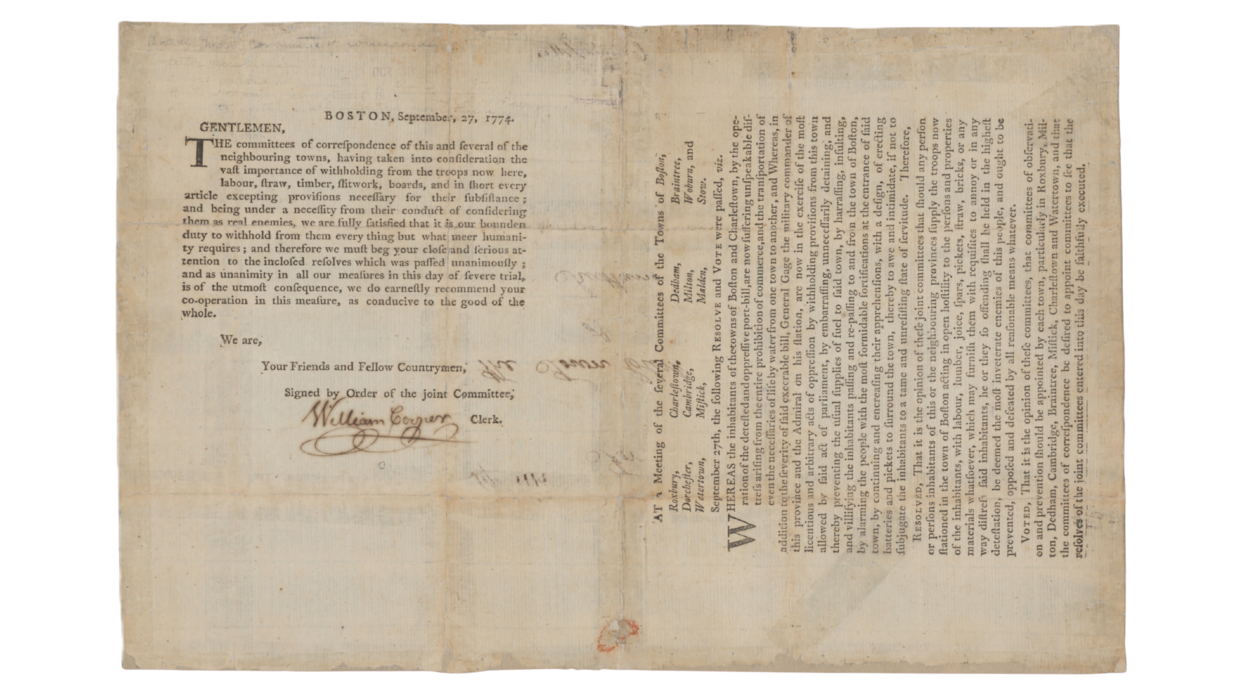 BOSTON, September, 27, 1774.
GENTLEMEN,
THE committees of correſpondence of this and ſeveral of the
neighbouring towns, having taken into conſideration the
vaſt importance of withholding from the troops now here,
labour, ſtraw, timber, ſlitwork, boards, and in ſhort every
article excepting proviſions neceſſary for their ſubſiſtance ;
and being under a neceſſity from their conduct of conſidering
them as real enemies, we are fully ſatisfied that it is our bounden
duty to withhold from them every thing but what meer humani-
ty requires ; and therefore we muſt beg your cloſe and ſerious at-
tention to the incloſed reſolves which was paſſed unanimouſly ;
and as unanimity in all our meaſures in this day of ſevere trial,
is of the utmoſt conſequence, we do earneſtly recommend your
co-operation in this meaſure, as conducive to the good of the
whole.
We are,
Your Friends and Fellow Countrymen,
Signed by Order of the joint Committee,
William Cooper Clerk.
AT a Meeting of the ſeveral Committees of the Towns of Boſton,
Roxbury, Charleſtown, Dedham, Braintree,
Dorcheſter, Cambridge, Milton, Woburn, and
Watertown, Miſtick, Malden, Stow.
September 27th, the following RESOLVE and VOTE were paſſed, viz.
WHEREAS the inhabitants of the towns of Boſton and Charleſtown, by the ope-
ration of the deteſted and oppreſſive port-bill, are now ſuffering unſpeakable diſ-
treſs ariſing from the entire prohibition of commerce, and the tranſportation of
even the neceſſaries of life by water from one town to another, and Whereas, in
addition to the ſeverity of ſaid execrable bill, General Gage the military commander of
this province and the Admiral on his ſtation, are now in the exerciſe of the moſt
licentious and arbitrary acts of oppreſſion by withholding proviſions from this town
allowed by ſaid act of parliament, by embarraſſing, unneceſſarily detaining, and
thereby preventing the uſual ſupplies of fuel to ſaid town, by harraſſing, inſulting,
and villifying the inhabitants paſſing and re-paſſing to and from the town of Boſton,
by alarming the people with the moſt formidable fortifications at the entrance of ſaid
town, by continuing and encreaſing their apprehenſions, with a deſign, of erecting
batteries and pickets to ſurround the town, thereby to awe and intimidate, if not to
ſubjugate the inhabitants to a tame and unreſiſting ſtate of ſervitude. Therefore,
RESOLVED, That it is the opinion of theſe joint committees that ſhould any perſon
or perſons inhabitants of this or the neighbouring provinces ſupply the troops now
ſtationed in the town of Boſton acting in open hoſtility to the perſons and properties
of the inhabitants, with labour, lumber, joice, ſpars, pickets, ſtraw, bricks, or any
materials whatſoever, which may furniſh them with requiſites to annoy or in any
way diſtreſs ſaid inhabitants, he or they ſo offending ſhall be held in the higheſt
deteſtation, be deemed the moſt inveterate enemies of this people, and ought to be
prevented, oppoſed and defeated by all reaſonable means whatever.
VOTED, That it is the opinion of theſe committees, that committees of obſervati-
on and prevention ſhould be appointed by each town, particularly in Roxbury, Mil-
ton, Dedham, Cambridge, Braintree, Miſtick, Charleſtown and Watertown, and that
the committees of correſpondence be deſired to appoint committees to ſee that the
reſolves of the joint committees entered into this day be faithfully executed.